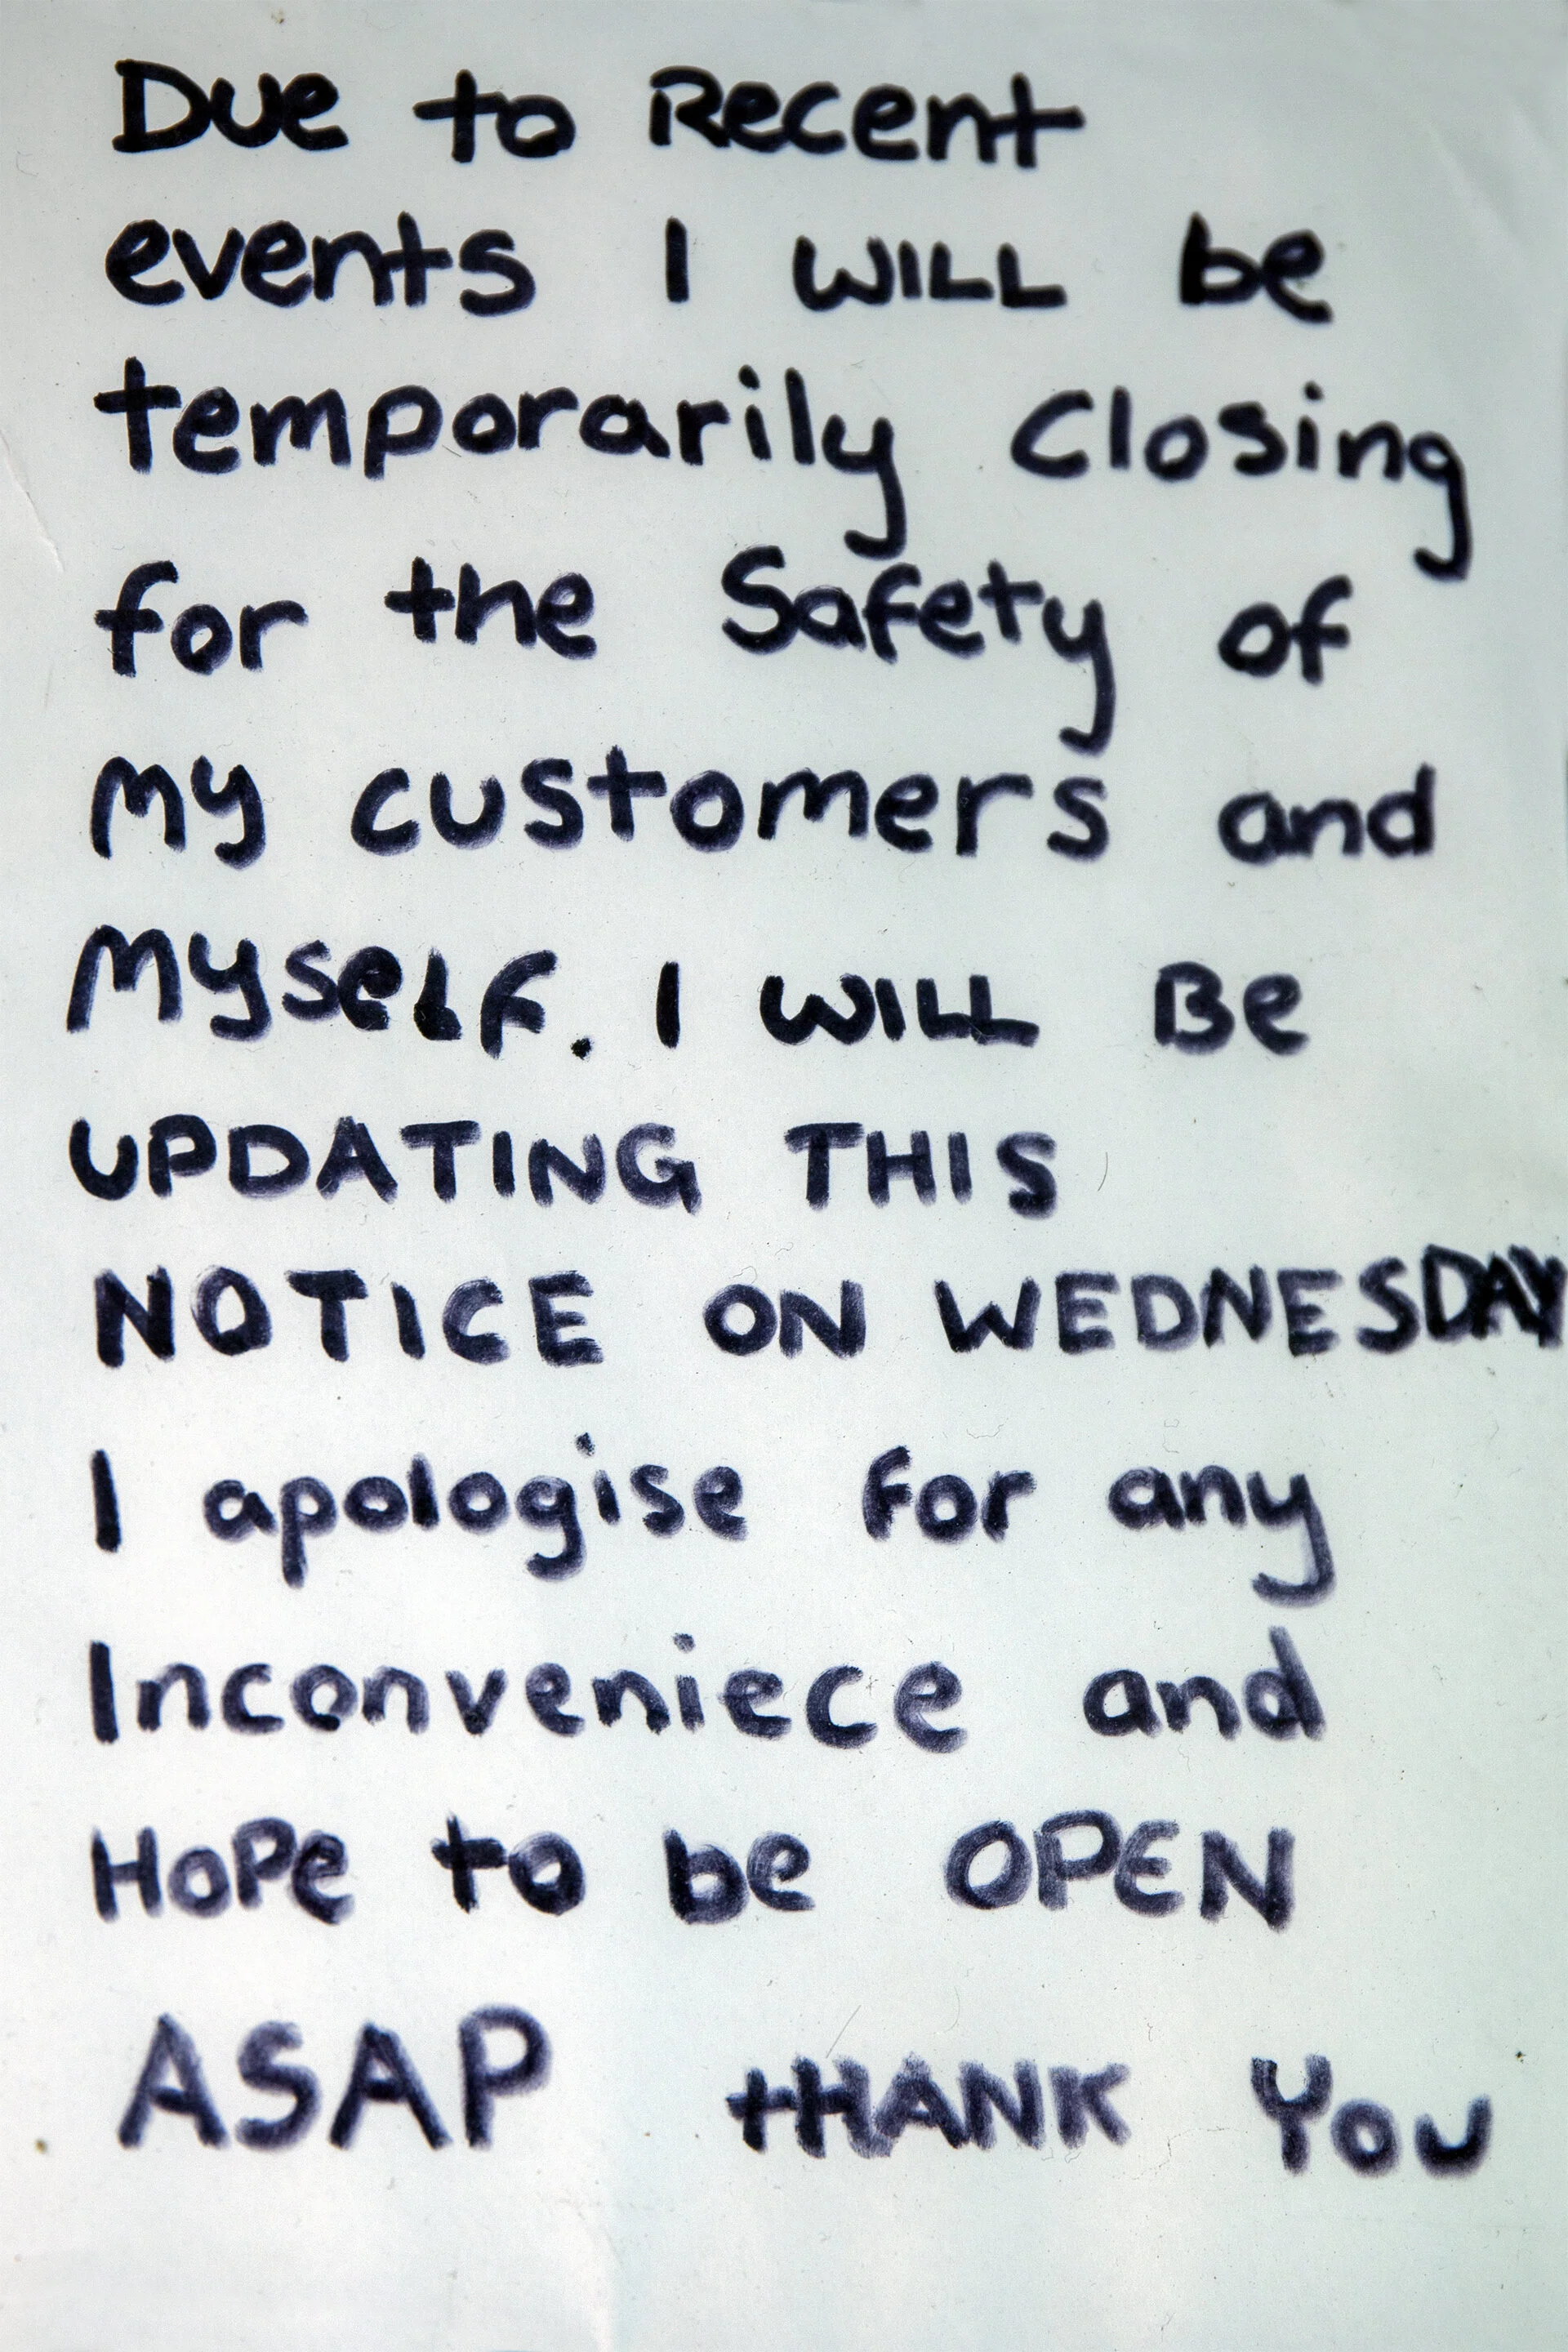 Due to Recent
events I WILL be
temporarily Closing
for the Safety of
My customers and
Myself. I WILL Be
UPDATING THIS
NOTICE ON WEDNESDAY
I apologise for any
Inconveniece and
HoPe to be OPEN
ASAP tHANK You